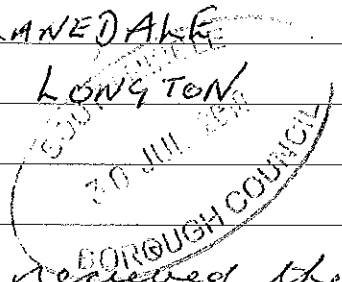 LANEDALE
LONGTON
SOUTH RIBBLE
30 JUL
BOROUGH COUNCIL
received the